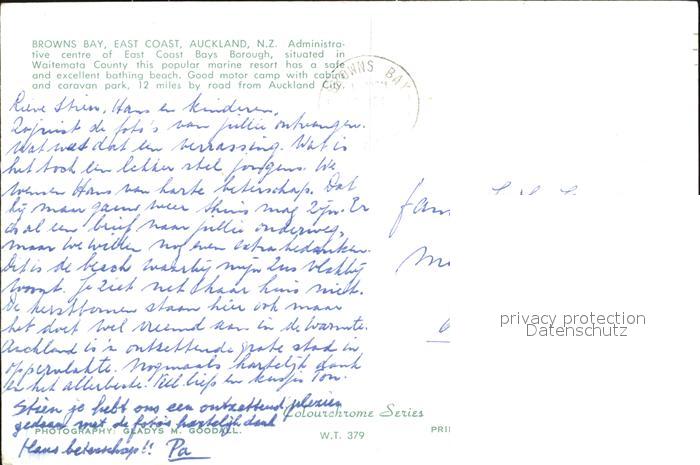 BROWNS BAY, EAST COAST, AUCKLAND, N.Z. Administra-
tive centre of East Coast Bays Borough, situated in
Waitemata County this popular marine resort has a safe
and excellent bathing beach. Good motor camp with cabins
and caravan park, 12 miles by road from Auckland City.
BROWNS BAY
Lieve Stien, Hans en kinderen,
Zojuist de foto's van jullie ontvangen.
Wat was dat een verrassing. Wat is
het toch een lekker stel jongens. We
wensen Hans van harte beterschap. Dat
hij maar gauw weer thuis mag zijn. Er
is al een brief naar jullie onderweg,
maar we willen nog even extra bedanken.
Dit is de beach waarbij mijn zus vlakbij
woont. Je ziet net haar huis niet.
De kerstbomen staan hier ook maar
het doet wel vreemd aan in de warmte.
Auckland is 'n ontzettende grote stad in
oppervlakte. Nogmaals hartelijk dank
en het allerbeste. Veel liefs en kusjes Ton.
Stien je hebt ons een ontzettend plezier
gedaan met de foto's hartelijk dank
Hans beterschap!! Pa
Fam.
Colourchrome Series
PHOTOGRAPHY: GLADYS M. GOODALL.
W.T. 379
PRI
privacy protection
Datenschutz